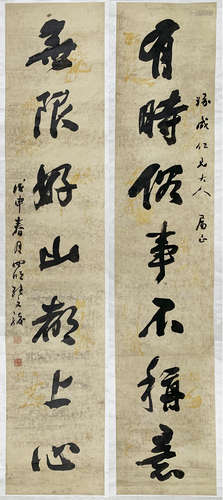 有時俗事不稱意
無限好山都上心
緣成仁兄大人 屬正
戊申春月